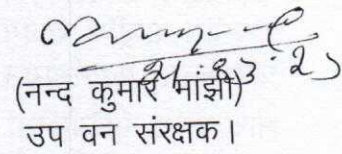 21.03.23
(नन्द कुमार मांझी)
उप वन संरक्षक।